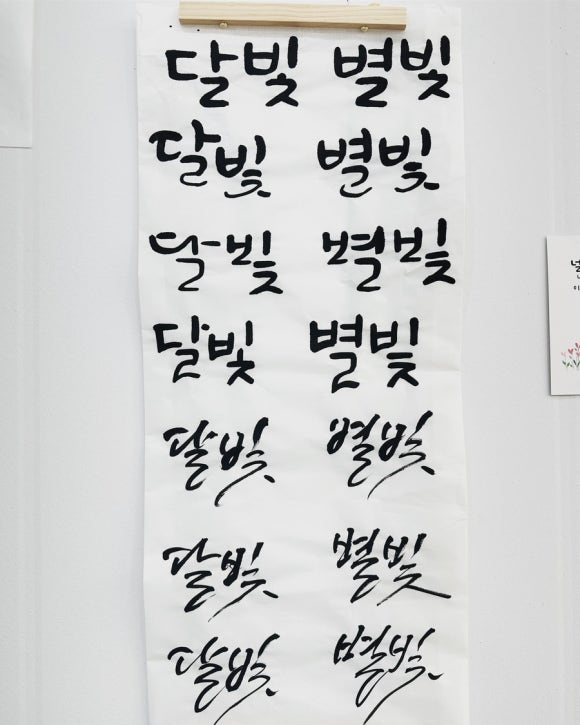 달빛 별빛
달빛 별빛
달빛 별빛
달빛 별빛
달빛 별빛
달빛 별빛
달빛 별빛